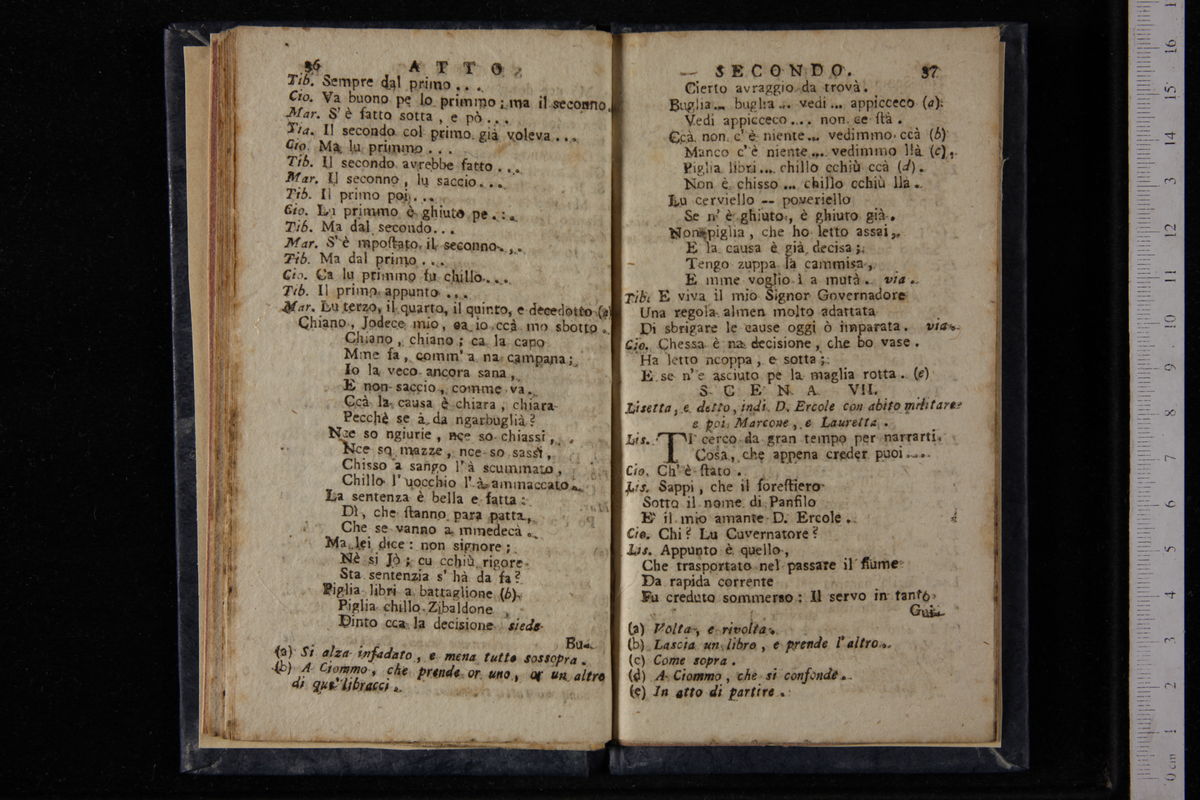 36 ATTO
Tib. Sempre dal primo . . .
Cio. Va buono pe lo primmo ; ma il seconno.
Mar. S'è fatto sotta , e pò . . .
Tia. Il secondo col primo già voleva . . .
Cio. Ma lu primmo . . .
Tib. Il secondo avrebbe fatto . . .
Mar. Il seconno , lu saccio . . .
Tib. Il primo poi . . .
Cio. Lu primmo è ghiuto pe . . .
Tib. Ma dal secondo . . .
Mar. S'è mpoſtato il seconno . . .
Tib. Ma dal primo . . .
Cio. Ca lu primmo fu chillo . . .
Tib. Il primo appunto . . .
Mar. Lu terzo, il quarto, il quinto, e decedotto (a)
Chiano, Jodece mio, ca io ccà mo sbotto .
Chiano , chiano ; ca la capo
Mme fa , comm' a na campana ;
Io la veco ancora sana ,
E non saccio , comme va .
Ccà la causa è chiara , chiara
Pecchè se à da ngarbuglià ?
Nce so ngiurie , nce so chiassi ,
Nce so mazze , nce so sassi ,
Chisso a sango l' à scummato ,
Chillo l' uocchio l' à ammaccato .
La sentenza è bella e fatta :
Dì , che ſtanno para patta ,
Che se vanno a mmedecà .
Ma lei dice : non signore ;
Nè si Jò ; cu cchiù rigore
Sta sentenzia s' hà da fa ?
Piglia libri a battaglione (b)
Piglia chillo Zibaldone
Dinto cca la decisione siede
Bu-
(a) Si alza infadato , e mena tutto sossopra .
(b) A Ciommo , che prende or uno , or un altro
di que' libracci .
SECONDO. 37
Cierto avraggio da trovà .
Buglia ... buglia ... vedi ... appicceco (a)
Vedi appicceco .... non ce ſtà .
Ccà non c' è niente ... vedimmo ccà (b)
Manco c' è niente ... vedimmo llà (c) ,
Piglia libri ... chillo cchiù ccà (d) .
Non è chisso ... chillo cchiù llà .
Lu cerviello -- poveriello
Se n' è ghiuto , è ghiuto già .
Non piglia , che ho letto assai ,
E la causa è già decisa ;
Tengo zuppa la cammisa ,
E mme voglio ì a mutà . via .
Tib. E viva il mio Signor Governadore
Una regola almen molto adattata
Di sbrigare le cause oggi ò imparata . via .
Cio. Chessa è na decisione , che bo vase .
Ha letto ncoppa , e sotta ;
E se n' e asciuto pe la maglia rotta . (e)
SCENA VII.
Lisetta, e detto, indi D. Ercole con abito militare
e poi Marcone , e Lauretta .
Lis. TI' cerco da gran tempo per narrarti
Cosa, che appena creder puoi ....
Cio. Ch' è ſtato .
Lis. Sappi , che il foreſtiero
Sotto il nome di Panfilo
E' il mio amante D. Ercole .
Cio. Chi ? Lu Cuvernatore ?
Lis. Appunto è quello ,
Che trasportato nel passare il fiume
Da rapida corrente
Fu creduto sommerso : Il servo in tanto
Gui-
(a) Volta , e rivolta .
(b) Lascia un libro , e prende l'altro .
(c) Come sopra .
(d) A Ciommo , che si confonde .
(e) In atto di partire .
0 cm 1 2 3 4 5 6 7 8 9 10 11 12 13 14 15 16